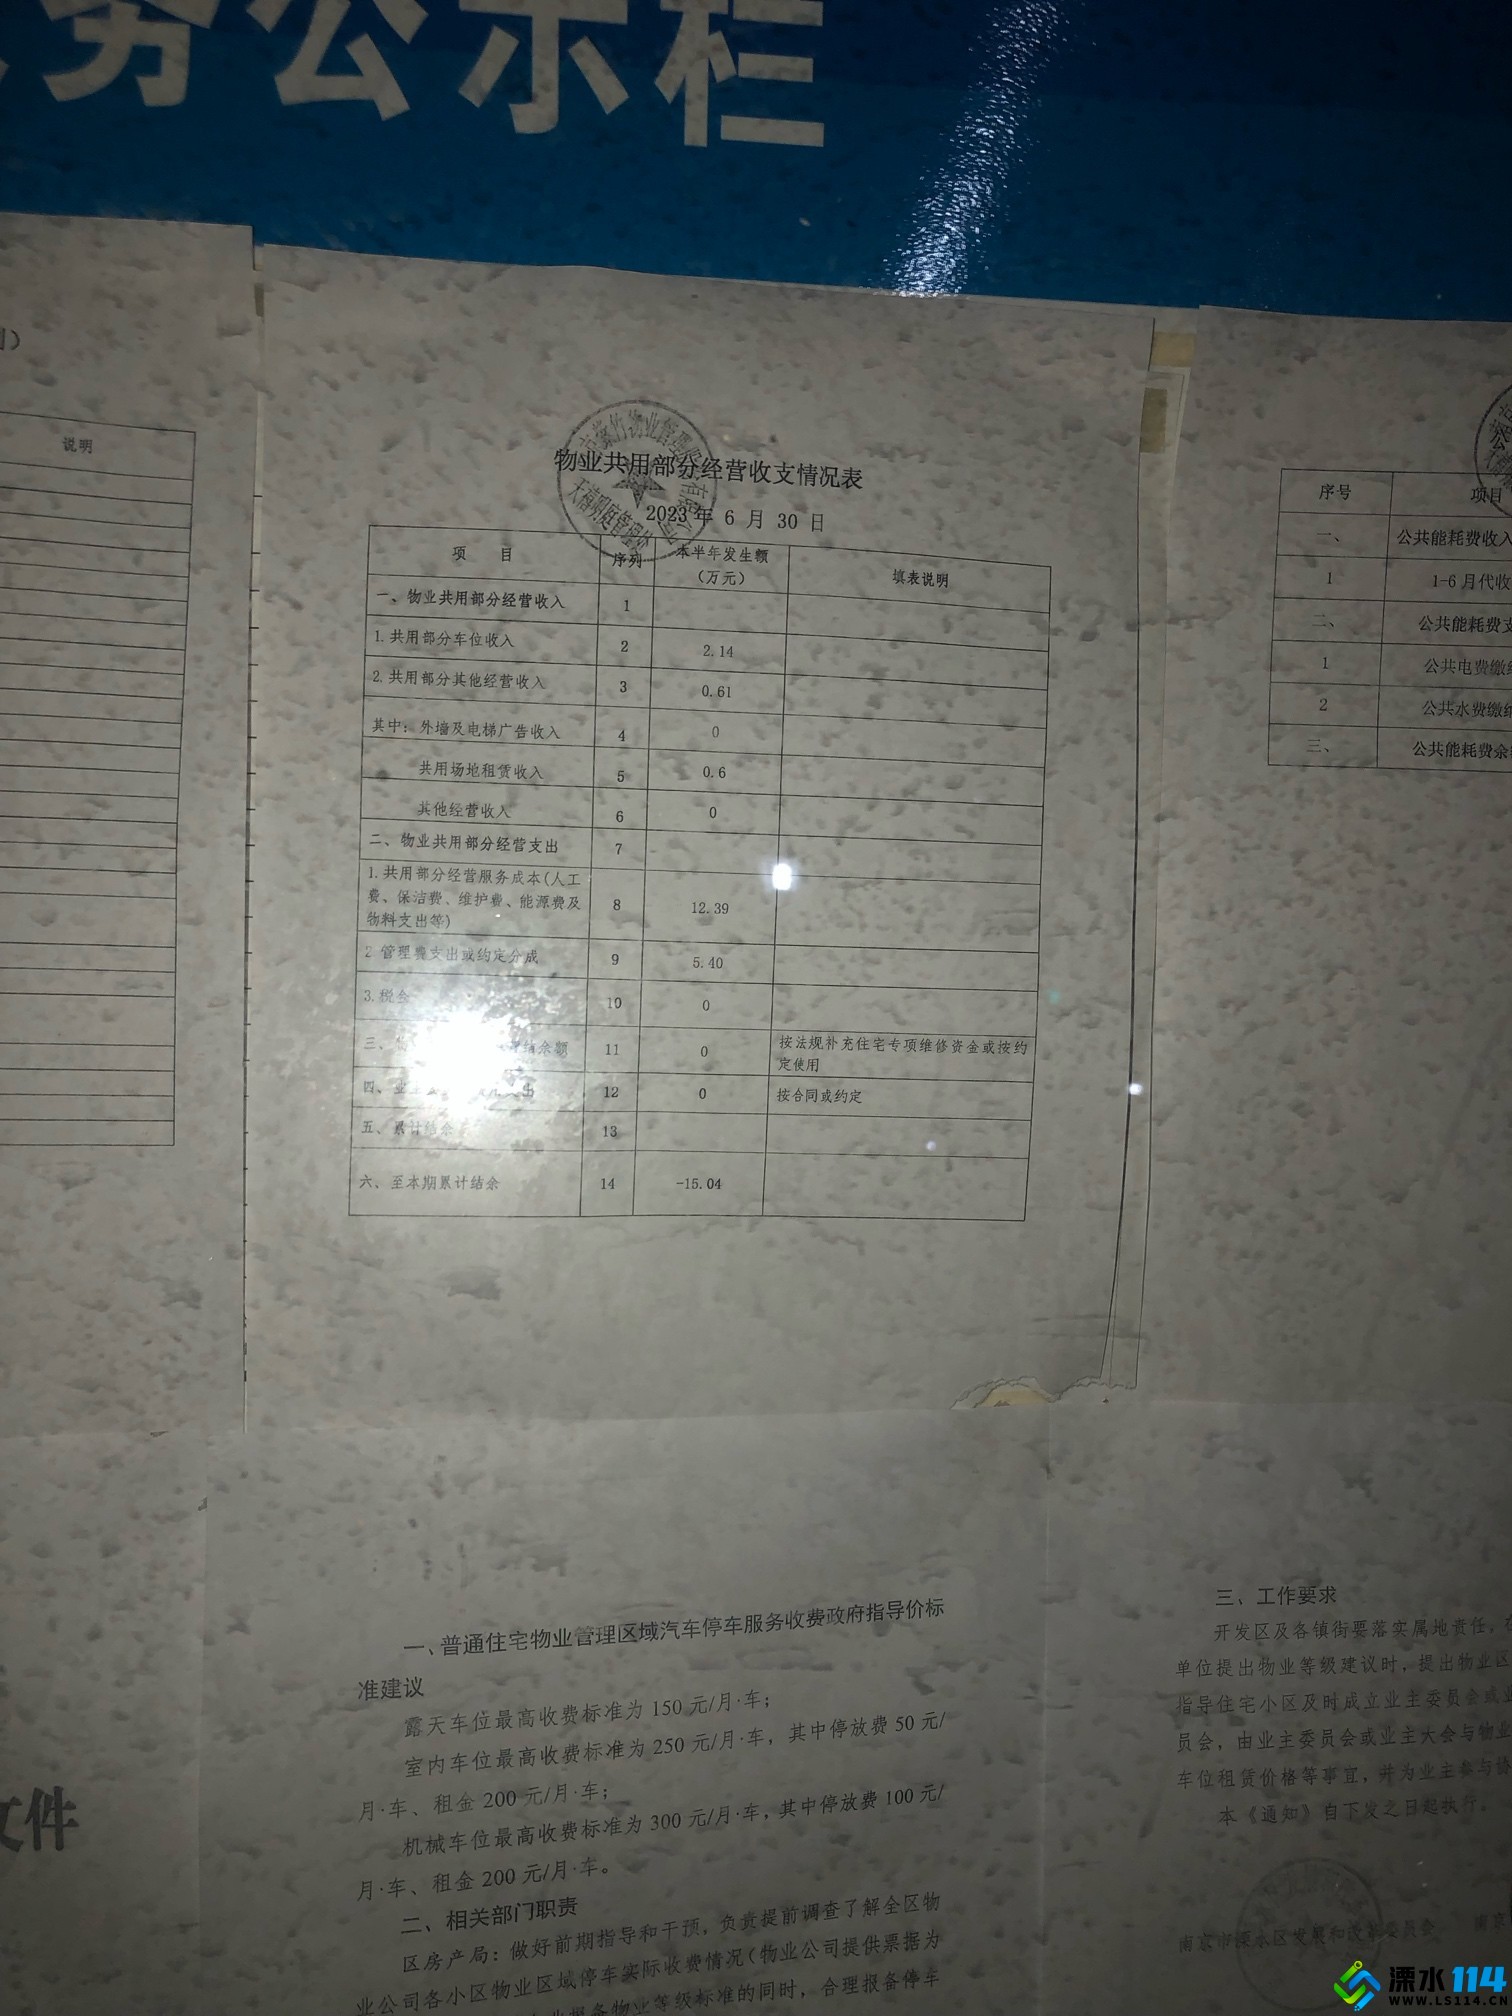 务公示栏
说明
物业共用部分经营收支情况表
2023 年 6 月 30 日
项 目 序列 本半年发生额（万元） 填表说明
一、物业共用部分经营收入 1
1.共用部分车位收入 2 2.14
2.共用部分其他经营收入 3 0.61
其中：外墙及电梯广告收入 4 0
共用场地租赁收入 5 0.6
其他经营收入 6 0
二、物业共用部分经营支出 7
1.共用部分经营服务成本(人工
费、保洁费、维护费、能源费及
物料支出等) 8 12.39
2 管理费支出或约定分成 9 5.40
3.税金 10 0
三、 结余额 11 0 按法规补充住宅专项维修资金或按约
定使用
四、业主 支出 12 0 按合同或约定
五、累计结余 13
六、至本期累计结余 14 -15.04
序号 项目
一、 公共能耗费收入
1 1-6 月代收
二、 公共能耗费支
1 公共电费缴纳
2 公共水费缴纳
三、 公共能耗费余
一、普通住宅物业管理区域汽车停车服务收费政府指导价标
准建议
露天车位最高收费标准为 150 元/月·车；
室内车位最高收费标准为 250 元/月·车，其中停放费 50 元/
月·车、租金 200 元/月·车；
机械车位最高收费标准为 300 元/月·车，其中停放费 100 元/
月·车、租金 200 元/月·车。
二、相关部门职责
区房产局：做好前期指导和干预，负责提前调查了解全区物
业公司各小区物业区域停车实际收费情况（物业公司提供票据为
报备物业等级标准的同时，合理报备停车
三、工作要求
开发区及各镇街要落实属地责任，
单位提出物业等级建议时，提出物业区
指导住宅小区及时成立业主委员会或业
员会，由业主委员会或业主大会与物业
车位租赁价格等事宜，并为业主参与协
本《通知》自下发之日起执行。
南京市溧水区发展和改革委员会 南京
文件
溧水114
WWW.LS114.CN